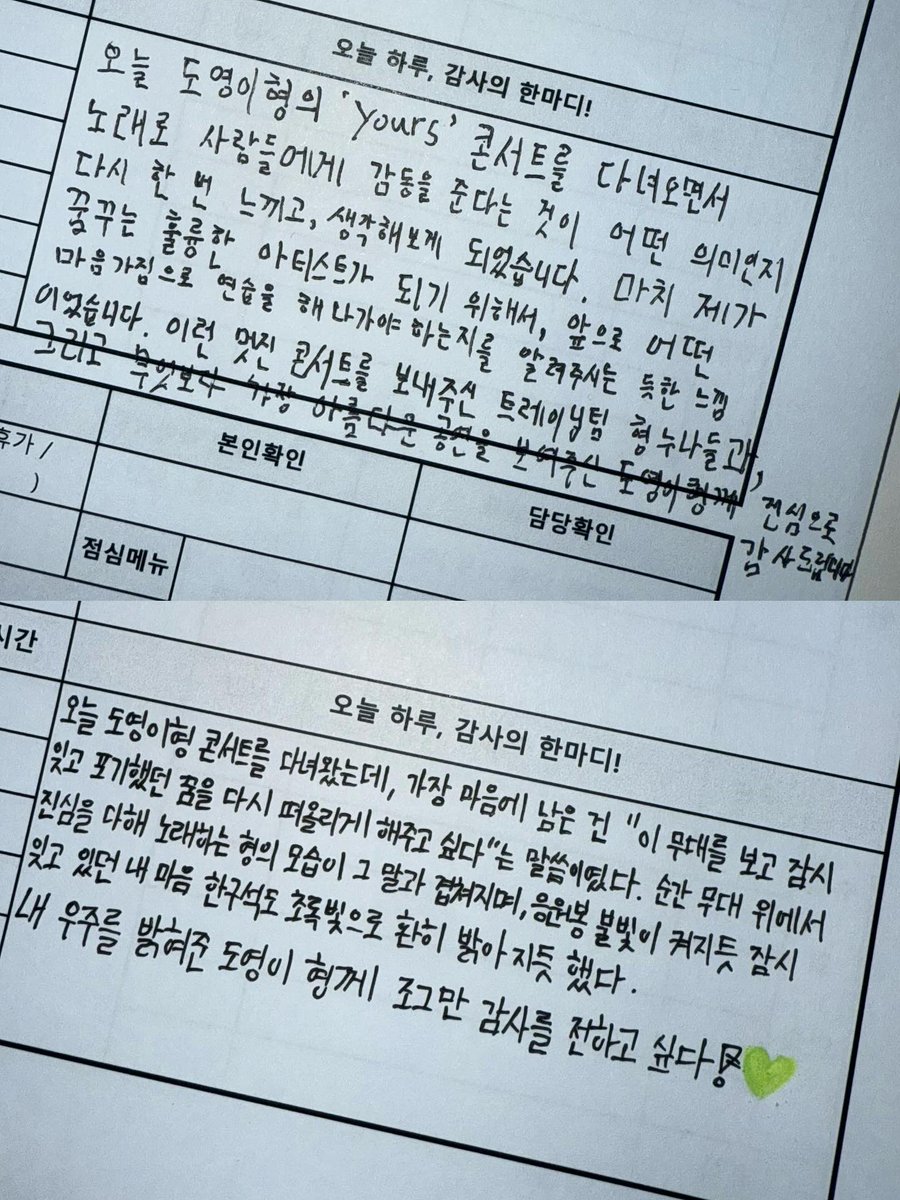 오늘 하루, 감사의 한마디!
오늘 도영이형의 'Yours' 콘서트를 다녀오면서
노래로 사람들에게 감동을 준다는 것이 어떤 의미인지
다시 한 번 느끼고, 생각해보게 되었습니다. 마치 제가
꿈꾸는 훌륭한 아티스트가 되기 위해서, 앞으로 어떤
마음가짐으로 연습을 해 나가야 하는지를 알려주시는 듯한 느낌
이었습니다. 이런 멋진 콘서트를 보내주신 트레이닝팀 형누나들과,
그리고 무엇보다 가장 아름다운 공연을 보여주신 도영이형께 진심으로
감사드립니다
휴가 /
)
본인확인
담당확인
점심메뉴
시간
오늘 하루, 감사의 한마디!
오늘 도영이형 콘서트를 다녀왔는데, 가장 마음에 남은 건 "이 무대를 보고 잠시
잊고 포기했던 꿈을 다시 떠올리게 해주고 싶다"는 말씀이였다. 순간 무대 위에서
진심을 다해 노래하는 형의 모습이 그 말과 겹쳐지며, 응원봉 불빛이 켜지듯 잠시
잊고 있던 내 마음 한구석도 초록빛으로 환히 밝아지듯 했다.
내 우주를 밝혀준 도영이 형께 조그만 감사를 전하고 싶다!